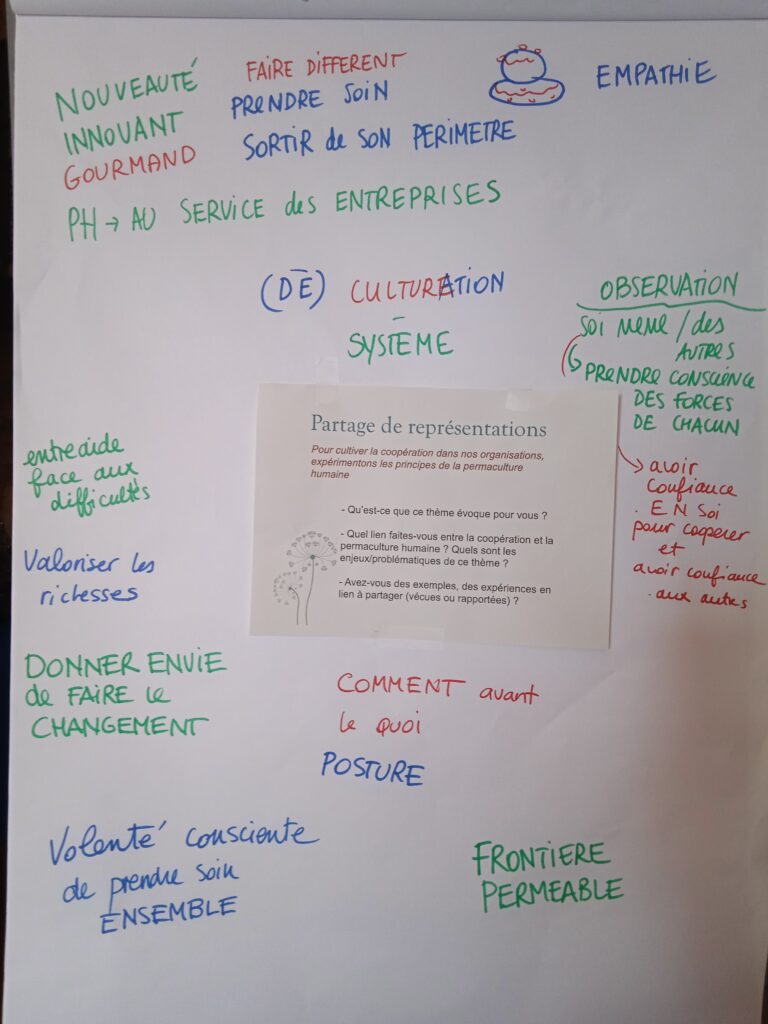 NOUVEAUTÉ
INNOVANT
GOURMAND
FAIRE DIFFERENT
PRENDRE SOIN
SORTIR de SON PERIMETRE
EMPATHIE
PH → AU SERVICE des ENTREPRISES
(DE) CULTURATION
SYSTEME
OBSERVATION
SOI MEME / des
AUTRES
PRENDRE CONSCIENCE
DES FORCES
DE CHACUN
→ avoir
confiance
EN Soi
pour cooperer
et
avoir confiance
aux autres
Partage de représentations
Pour cultiver la coopération dans nos organisations,
expérimentons les principes de la permaculture
humaine
- Qu'est-ce que ce thème évoque pour vous ?
- Quel lien faites-vous entre la coopération et la
permaculture humaine ? Quels sont les
enjeux/problématiques de ce thème ?
- Avez-vous des exemples, des expériences en
lien à partager (vécues ou rapportées) ?
entreaide
face aux
difficultés
Valoriser les
richesses
DONNER ENVIE
de FAIRE le
CHANGEMENT
COMMENT avant
le quoi
POSTURE
Volonté consciente
de prendre soin
ENSEMBLE
FRONTIERE
PERMEABLE